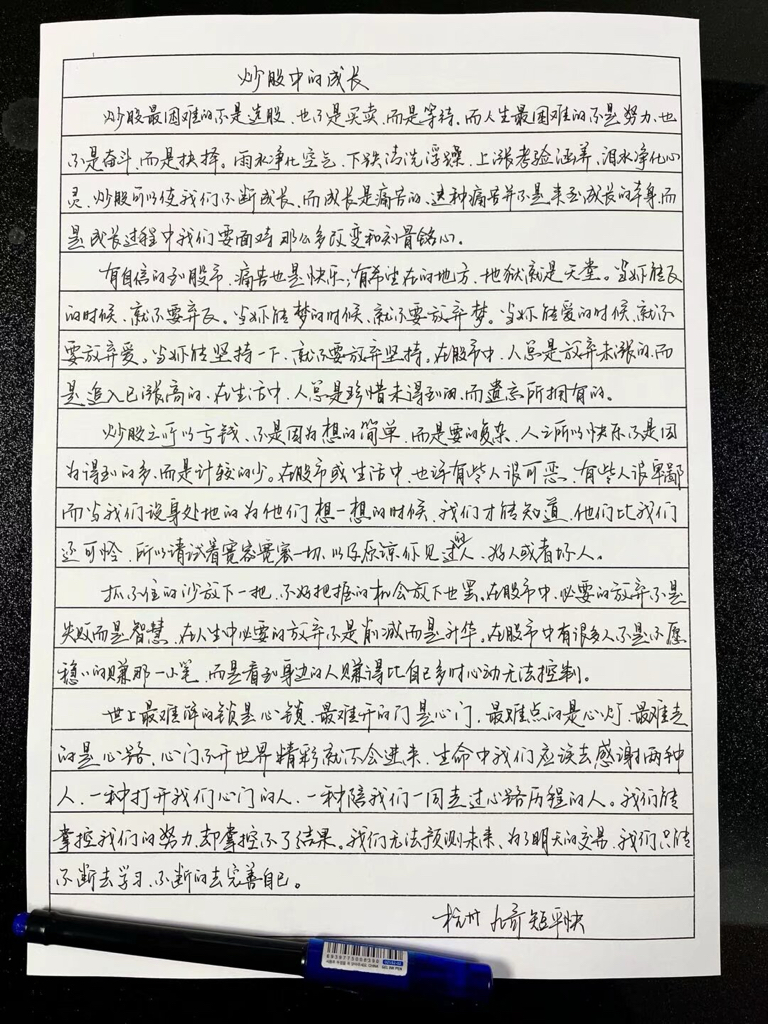 炒股中的成长
炒股最困难的不是选股、也不是买卖、而是等待、而人生最困难的不是努力、也
不是奋斗、而是抉择。雨水净化空气、下跌清洗浮躁、上涨考验涵养、泪水净化心
灵、炒股可以使我们不断成长、而成长是痛苦的、这种痛苦并不是来至成长的本身、而
是成长过程中我们要面对那么多改变和刻骨铭心。
有自信的到股市、痛苦也是快乐；有希望在的地方、地狱就是天堂。当你能飞
的时候、就不要弃飞。当你能梦的时候、就不要放弃梦。当你能爱的时候、就不
要放弃爱。当你能坚持一下、就不要放弃坚持。在股市中、人总是放弃未涨的、而
是追入已涨高的、在生活中、人总是珍惜未得到的、而遗忘所拥有的。
炒股之所以亏钱、不是因为想的简单、而是要的复杂、人之所以快乐不是因
为得到的多、而是计较的少。在股市或生活中、也许有些人很可恶、有些人很卑鄙
而当我们设身处地的为他们想一想的时候、我们才能知道、他们比我们
还可怜、所以请试着宽容宽容一切、以及原谅你见过的人、好人或者坏人。
抓不住的沙放下一把、不好把握的机会放下也罢。在股市中、必要的放弃不是
失败而是智慧、在人生中必要的放弃不是削减而是升华。在股市中有很多人不是不愿
稳稳的赚那一小笔、而是看到身边的人赚得比自己多时心动无法控制。
世上最难解的锁是心锁、最难开的门是心门、最难点的是心灯、最难走
的是心路、心门不开世界精彩就不会进来、生命中我们应该去感谢两种
人、一种打开我们心门的人、一种陪我们一同走过心路历程的人。我们能
掌控我们的努力、却掌控不了结果。我们无法预测未来、为了明天的交易、我们只能
不断去学习、不断的去完善自己。
杭州 短平快